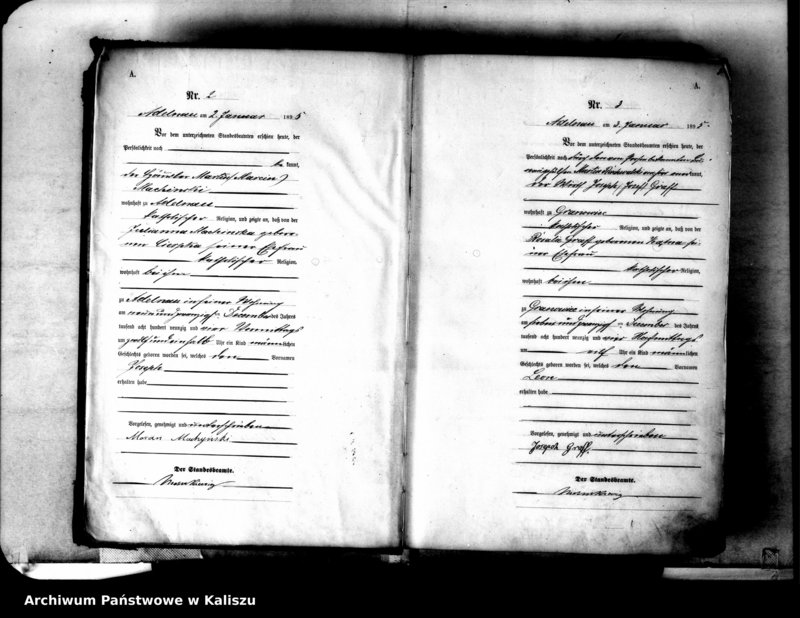 A.
Nr. 2
Adelnau am 2. Januar 1895
Vor dem unterzeichneten Standesbeamten erschien heute, der
Persönlichkeit nach
be kannt,
der Häusler
wohnhaft zu Adelnau
katholischer Religion, und zeigte an, daß von der
seiner Ehefrau
katholischer Religion,
wohnhaft bei ihm
zu Adelnau in seiner Wohnung
am neunundzwanzigsten Dezember des Jahres
tausend acht hundert neunzig und vier Vormittags
um zwölf und einhalb Uhr ein Kind männlichen
Geschlechts geboren worden sei, welches den Vornamen
Joseph
erhalten habe
Vorgelesen, genehmigt und unterschrieben
Der Standesbeamte.
A.
Nr. 3
Adelnau am 3. Januar 1895.
Vor dem unterzeichneten Standesbeamten erschien heute, der
Persönlichkeit nach durch den von Person bekannten
kannt,
der Wirth Joseph Graff
wohnhaft zu Granowiec
katholischer Religion, und zeigte an, daß von der
Rosalia Graff geborenen seiner Ehefrau
katholischer Religion,
wohnhaft bei ihm
zu Granowiec in seiner Wohnung
am siebenundzwanzigsten Dezember des Jahres
tausend acht hundert neunzig und vier Nachmittags
um elf Uhr ein Kind männlichen
Geschlechts geboren worden sei, welches den Vornamen
Leon
erhalten habe
Vorgelesen, genehmigt und unterschrieben
Joseph Graff.
Der Standesbeamte.
Archiwum Państwowe w Kaliszu